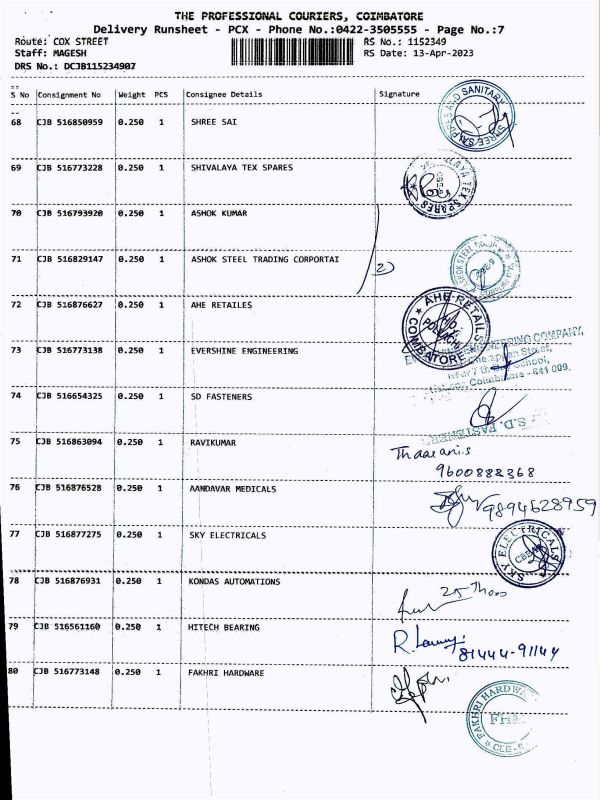 THE PROFESSIONAL COURIERS, COIMBATORE
Delivery Runsheet - PCX - Phone No.:0422-3505555 - Page No.:7
Route: COX STREET RS No.: 1152349
Staff: MAGESH RS Date: 13-Apr-2023
DRS No.: DCJB115234907
S No Consignment No Weight PCS Consignee Details Signature
68 CJB 516850959 0.250 1 SHREE SAI
69 CJB 516773228 0.250 1 SHIVALAYA TEX SPARES
70 CJB 516793920 0.250 1 ASHOK KUMAR
71 CJB 516829147 0.250 1 ASHOK STEEL TRADING CORPORTAI
72 CJB 516876627 0.250 1 AHE RETAILES
AHE RETAILS
COIMBATORE
73 CJB 516773138 0.250 1 EVERSHINE ENGINEERING
74 CJB 516654325 0.250 1 SD FASTENERS
75 CJB 516863094 0.250 1 RAVIKUMAR
9600882368
76 CJB 516876528 0.250 1 AANDAVAR MEDICALS
9894628959
77 CJB 516877275 0.250 1 SKY ELECTRICALS
SKY ELECTRICALS
78 CJB 516876931 0.250 1 KONDAS AUTOMATIONS
79 CJB 516561160 0.250 1 HITECH BEARING
81444-91144
80 CJB 516773148 0.250 1 FAKHRI HARDWARE